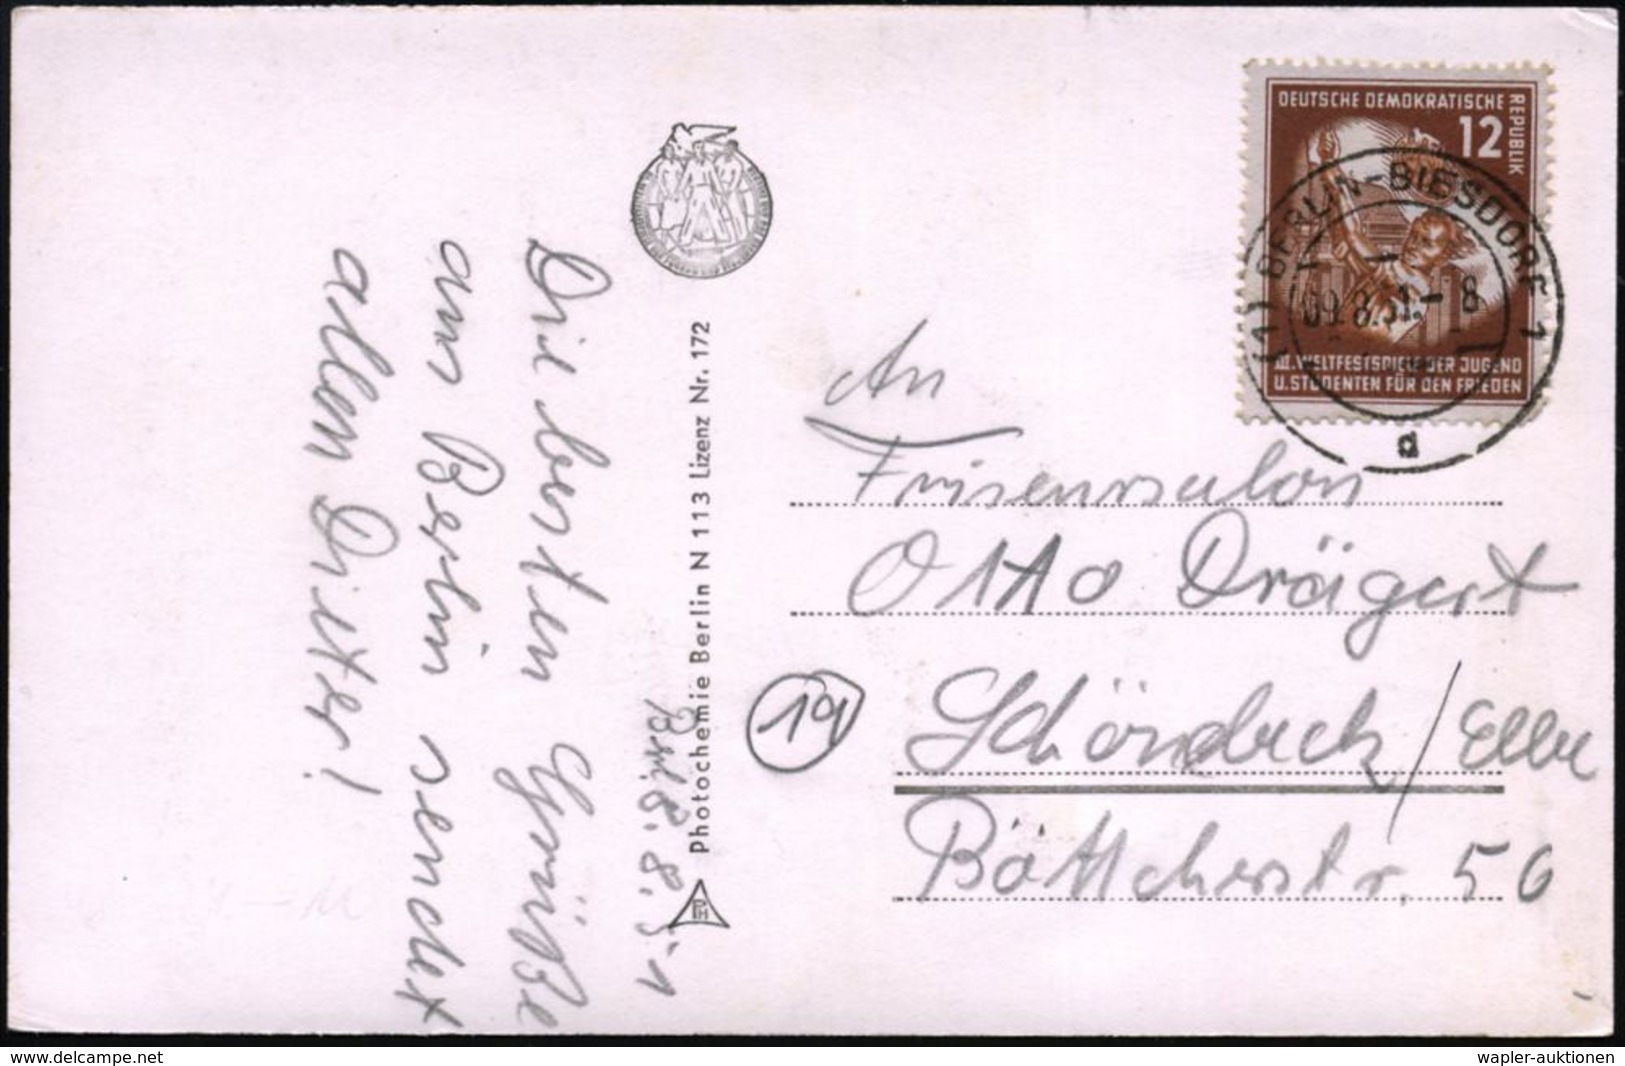 Die besten Grüße
aus Berlin sendet
allen Dieter!
Brl. 8.8.51
Photochemie Berlin N 113 Lizenz Nr. 172
DEUTSCHE DEMOKRATISCHE
REPUBLIK
12
III. WELTFESTSPIELE DER JUGEND
U. STUDENTEN FÜR DEN FRIEDEN
(1) BERLIN-BIESDORF 1
09.8.51.-8
a
An
Friseursalon
Otto Drägert
(19)
Schönebeck/Elbe
Böttcherstr. 56
www.delcampe.net
wapler-auktionen